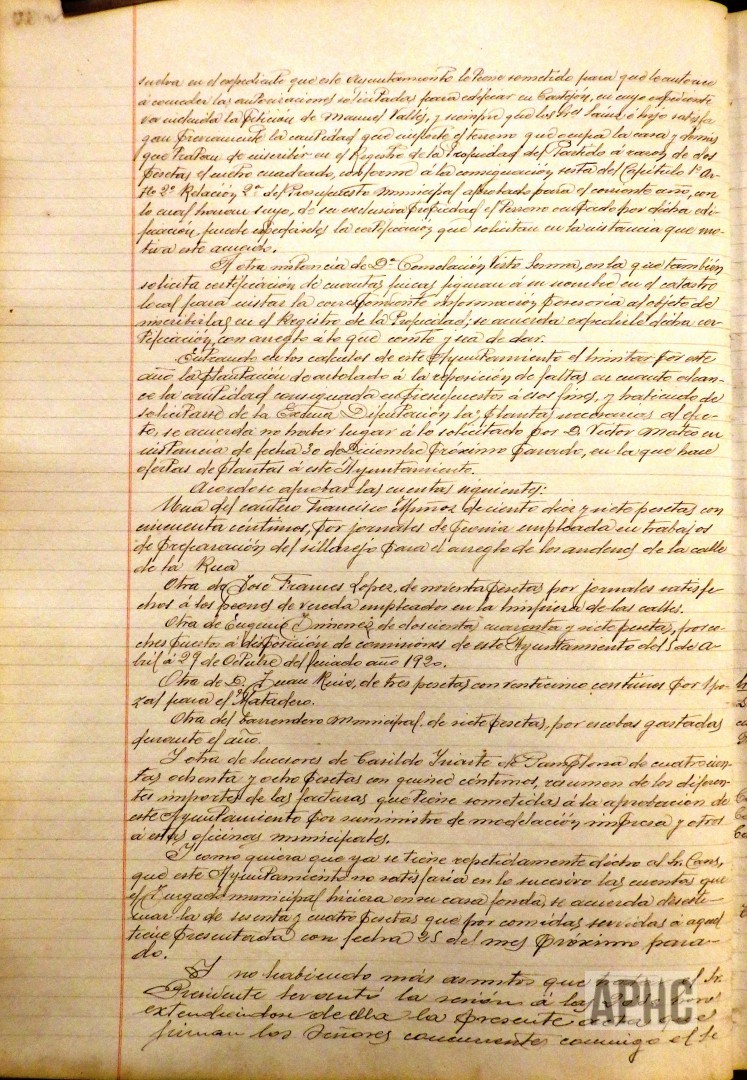 suelva en el expediente que este Ayuntamiento le tiene sometido para que le autorice
á conceder las autorizaciones solicitadas para edificar en Castejón, en cuyo expediente
va incluida la petición de Manuel Vallés, y siempre que los tres Sainz é hijo satisfa
gan previamente la cantidad que importe el terreno que ocupa la casa y demás
que tratan de inscribir en el Registro de la Propiedad del Partido á razón de dos
pesetas el metro cuadrado, conforme á la consignación sexta del Capítulo 1º Ar-
tº 2º Relación 2ª del Presupuesto municipal aprobado para el corriente año, con
lo cual harían suyo, de su exclusiva propiedad el terreno ocupado por dicha edi-
ficación, puede expedirseles la certificación que solicitan en la instancia que mo-
tiva este acuerdo.
A otra instancia de Dª Consolación Visto Serma, en la que también
solicita certificación de cuantas fincas figuran á su nombre en el catastro
local para instar la correspondiente información posesoria al objeto de
inscribirlas en el Registro de la Propiedad; se acuerda expedirle dicha cer-
tificación, con arreglo á lo que conste y sea de dar.
Entrando en los cálculos de este Ayuntamiento el limitar por este
año la plantación de arbolado á la reposición de faltas en cuanto alcan-
ce la cantidad consignada en presupuestos á esos fines, y habiendo de
solicitarse de la Excma Diputación las plantas necesarias al efec-
to, se acuerda no haber lugar á lo solicitado por D. Victor Mateo en
instancia de fecha 30 de Diciembre próximo pasado, en la que hace
ofertas de plantas á este Ayuntamiento.
Acordose aprobar las cuentas siguientes:
Una del cantero Francisco Muñoz de ciento diez y siete pesetas con
cincuenta céntimos, por jornales de peonía empleada en trabajos
de preparación del sillarejo para el arreglo de los andenes de la calle
de la Rua
Otra de José Frances Lopez, de noventa pesetas por jornales satisfe-
chos á los peones de vereda empleados en la limpieza de las calles.
Otra de Eugenio Jimenez de doscientas cuarenta y siete pesetas, por co-
ches puestos á disposición de comisiones de este Ayuntamiento del 5 de A-
bril á 29 de Octubre del finado año 1920.
Otra de D. Juan Ruiz, de tres pesetas con veinticinco céntimos por 1 po-
zal para el Matadero.
Otra del barrendero municipal, de siete pesetas, por escobas gastadas
durante el año.
Y otra de sucesores de Casildo Iriarte de Pamplona de cuatrocien-
tas ochenta y ocho pesetas con quince céntimos, resumen de los diferen-
tes importes de las facturas que tiene sometidas á la aprobación de
este Ayuntamiento por suministro de modelación impresa y otros
á estas oficinas municipales.
Y como quiera que ya se tiene repetidamente dicho al Sr. Cans,
que este Ayuntamiento no satisfaría en lo sucesivo las cuentas que
el Juzgado municipal hiciera en su casa fonda, se acuerda desesti-
mar la de sesenta y cuatro pesetas que por comidas servidas á aquel
tiene presentada con fecha 25 del mes próximo pasa-
do.
Y no habiendo más asuntos que el Sr.
Presidente levantó la sesión á las
extendiéndose de ella la presente acta que
firman los Señores concurrentes conmigo el Se
APHC